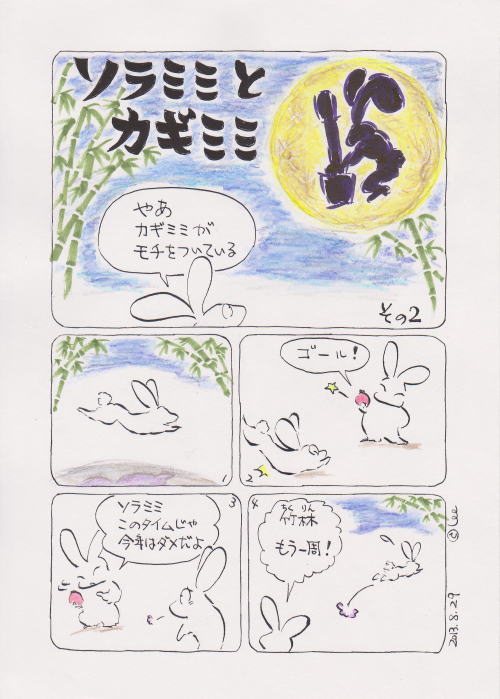 ソラミミと
カギミミ
やあ
カギミミが
モチをついている
その2
1
ゴール!
2
3
ソラミミ
このタイムじゃ
今年はダメだよ
4
ちくりん
竹林
もう一周!
© Lee
2013.8.29